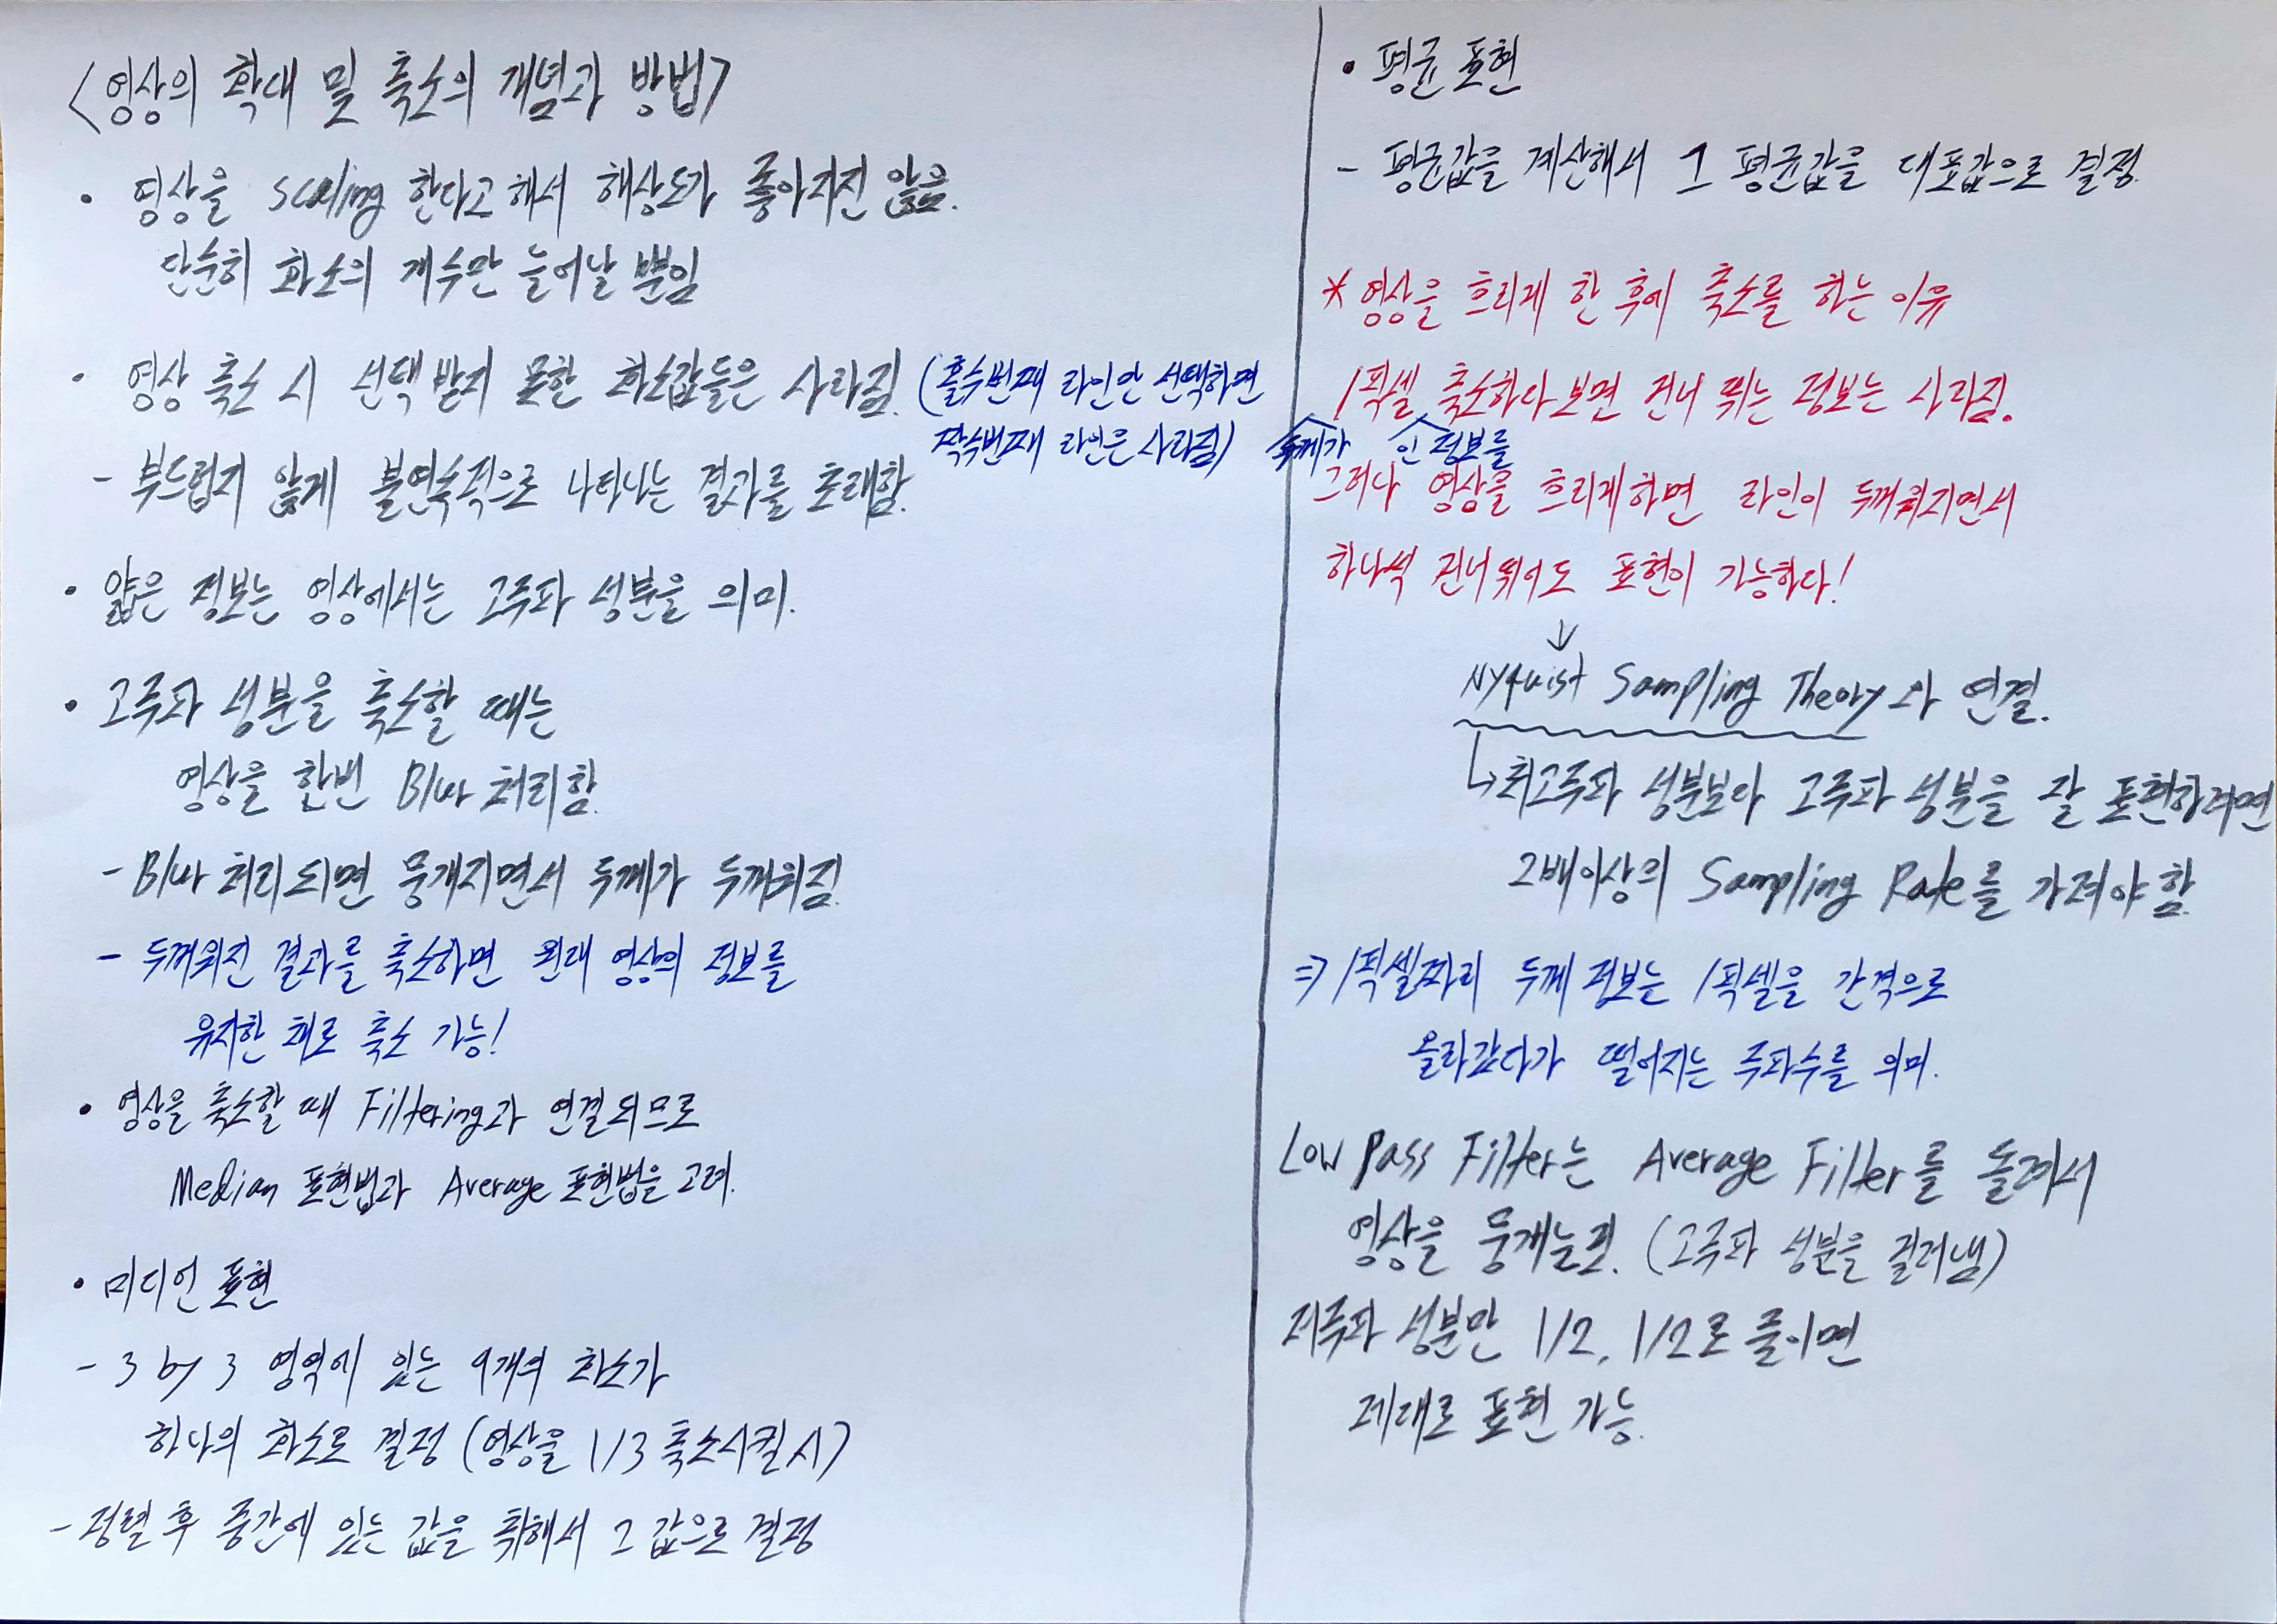 <영상의 확대 및 축소의 개념과 방법>
• 영상을 scaling 한다고 해서 해상도가 좋아지진 않음.
단순히 화소의 개수만 늘어날 뿐임
• 영상 축소 시 선택 받지 못한 화소값들은 사라짐. (홀수번째 라인만 선택하면
짝수번째 라인은 사라짐)
- 부드럽지 않게 불연속적으로 나타나는 결과를 초래함.
• 얇은 정보는 영상에서는 고주파 성분을 의미.
• 고주파 성분을 축소할 때는
영상을 한번 Blur 처리함.
- Blur 처리되면 뭉개지면서 두께가 두꺼워짐.
- 두꺼워진 결과를 축소하면 원래 영상의 정보를
유지한 채로 축소 가능!
• 영상을 축소할 때 Filtering과 연결되므로
Median 표현법과 Average 표현법을 고려.
• 미디언 표현
- 3 by 3 영역에 있는 9개의 화소가
하나의 화소로 결정 (영상을 1/3 축소시킬 시)
- 정렬 후 중간에 있는 값을 취해서 그 값으로 결정
• 평균 표현
- 평균값을 계산해서 그 평균값을 대표값으로 결정.
* 영상을 흐리게 한 후에 축소를 하는 이유
1픽셀 축소하다 보면 건너 뛰는 정보는 사라짐.
두께가 인 정보를
그러나 영상을 흐리게하면 라인이 두꺼워지면서
하나씩 건너뛰어도 표현이 가능하다!
↓
Nyquist Sampling Theory와 연결.
↳ 최고주파 성분보다 고주파 성분을 잘 표현하려면
2배이상의 Sampling Rate를 가져야 함.
⇒ 1픽셀짜리 두께 정보는 1픽셀을 간격으로
올라갔다가 떨어지는 주파수를 의미.
Low Pass Filter는 Average Filter를 돌려서
영상을 뭉개놓고. (고주파 성분을 걸러냄)
저주파 성분만 1/2, 1/2로 줄이면
제대로 표현 가능.